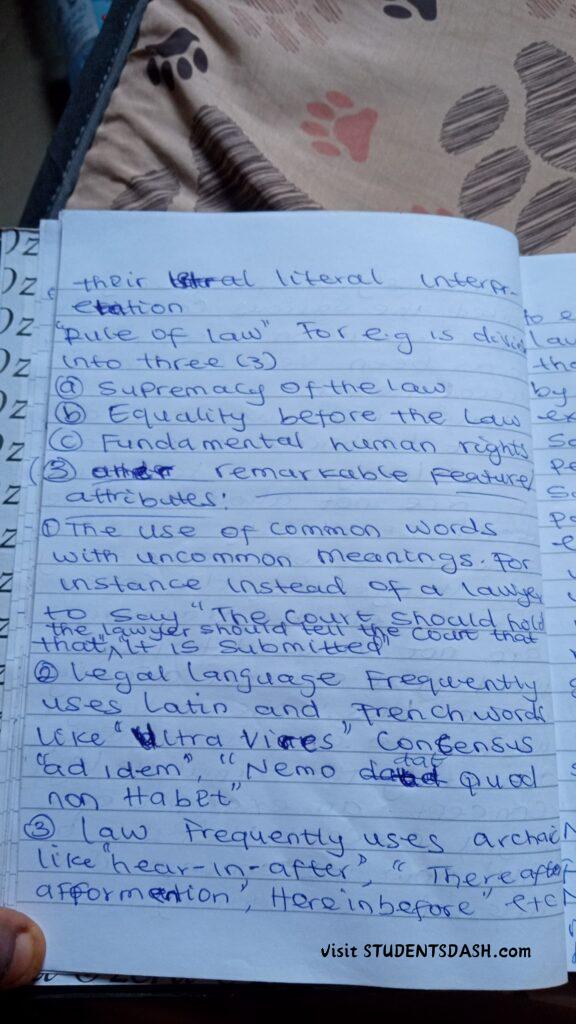 their literal interpr-
etation
"Rule of law" For e.g is divi
into three (3)
(a) Supremacy of the law
(b) Equality before the Law
(c) Fundamental human rights
(3) remarkable Feature
attributes:
(1) The use of common words
with uncommon meanings. For
instance instead of a lawyer
to say "The Court should hold
the lawyer should tell the Court that
that" ^ It is Submitted"
(2) Legal language Frequently
uses Latin and French words
like "Ultra Vires" Consensus
"ad idem", "Nemo dat Quod
non Habet"
(3) Law Frequently uses archaic
like "hear-in-after", "Thereafter
afformention", Hereinbefore" etc
visit STUDENTSDASH.com